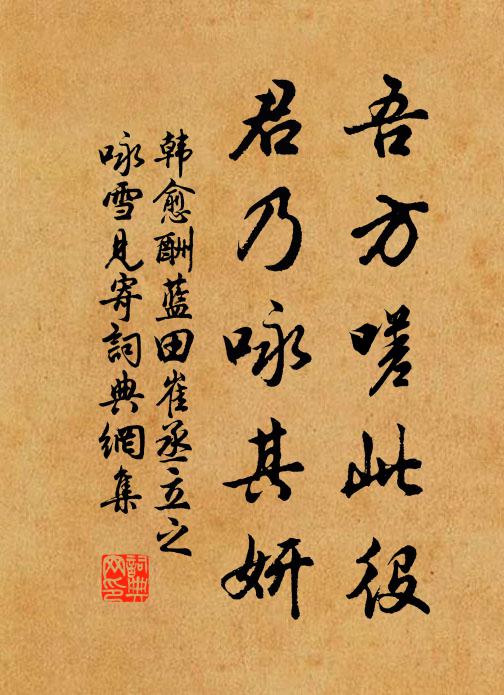 吾方嗟此役
君乃咏其妍
韩愈酬蓝田崔丞立之
咏雪见寄词典網集
詞典
网印